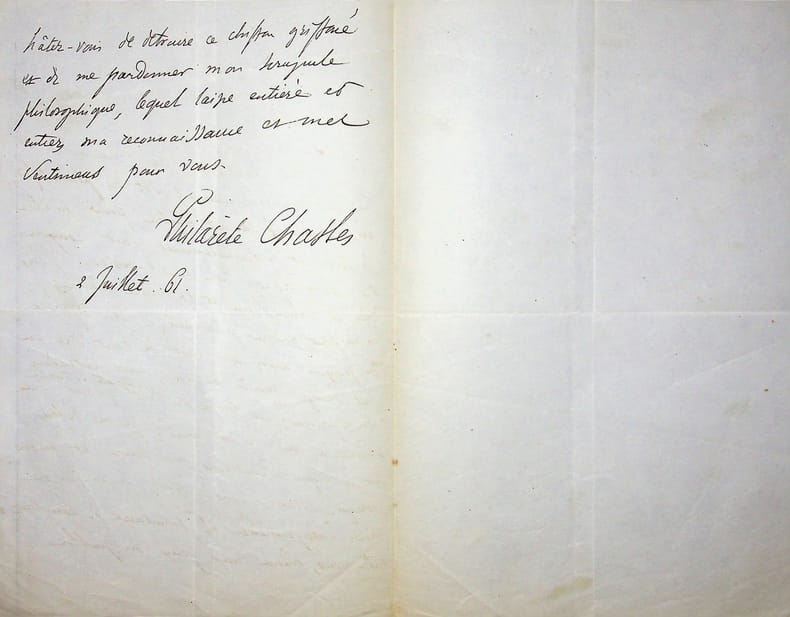 hâtez-vous de détruire ce chiffon griffoné
et de me pardonner mon scrupule
philosophique, lequel laisse entière et
entiers ma reconnaissance et mes
sentimens pour vous.
Philarète Chasles
2 Juillet. 61.